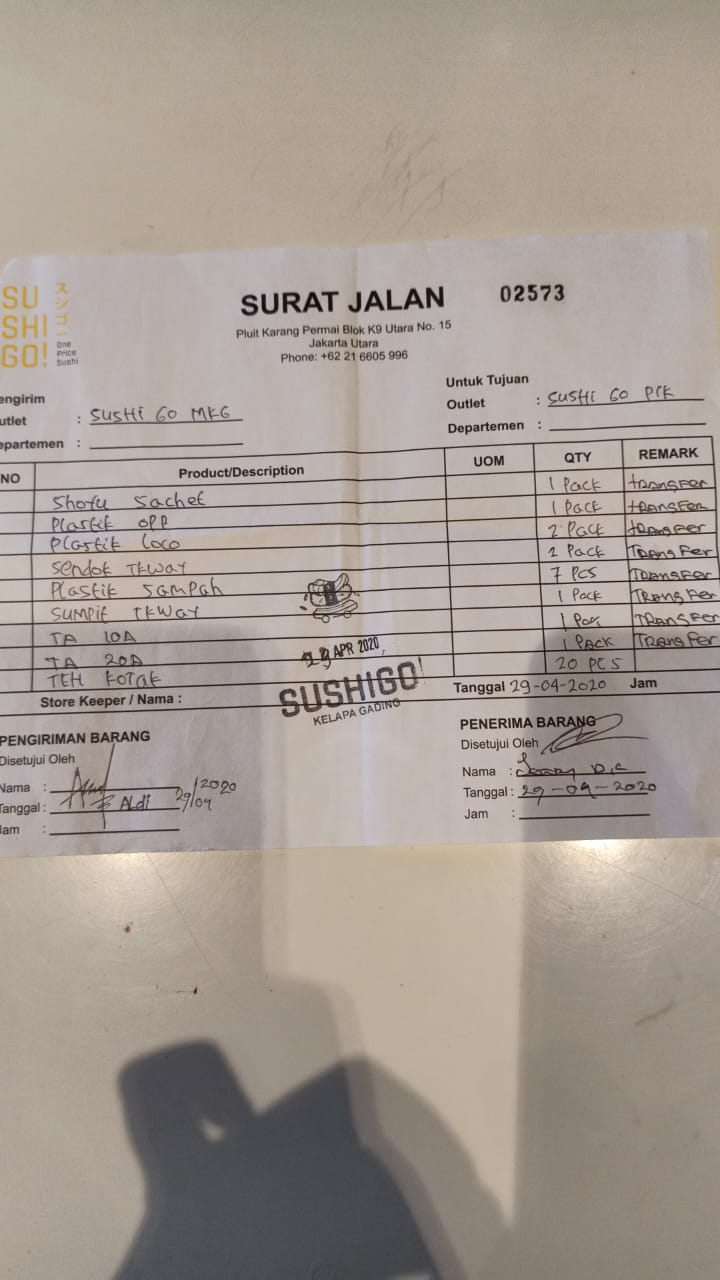 SU
SHI
GO!
スシゴー
One
Price
Sushi
SURAT JALAN 02573
Pluit Karang Permai Blok K9 Utara No. 15
Jakarta Utara
Phone: +62 21 6605 996
engirim
utlet : SUSHI GO MKG
epartemen :
Untuk Tujuan
Outlet : SUSHI GO PIK
Departemen :
NO Product/Description UOM QTY REMARK
Shoyu Sachet 1 Pack TRANSFER
Plastik OPP 1 Pack TRANSFER
Plastik Loco 2 Pack TRANSFER
Sendok TKWAY 2 Pack TRANSFER
Plastik Sampah 7 PCS TRANSFER
SUMPIT TKWAY 1 Pack TRANSFER
TA 10A 1 Pack TRANSFER
TA 20A 1 PACK TRANSFER
TEH KOTAK 20 PCS
Store Keeper / Nama :
Tanggal 29-04-2020 Jam
29 APR 2020
SUSHIGO!
KELAPA GADING
PENGIRIMAN BARANG
Disetujui Oleh
Nama :
Tanggal : Aldi 29/04/2020
Jam :
PENERIMA BARANG
Disetujui Oleh
Nama :
Tanggal : 29-04-2020
Jam :